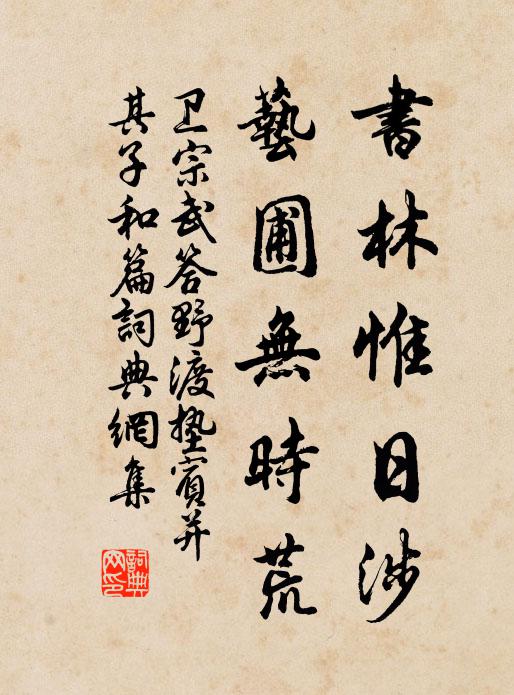 書林惟日涉
藝圃無時荒
卫宗武答野渡塾賓并
其子和篇詞典網集
詞典
网印